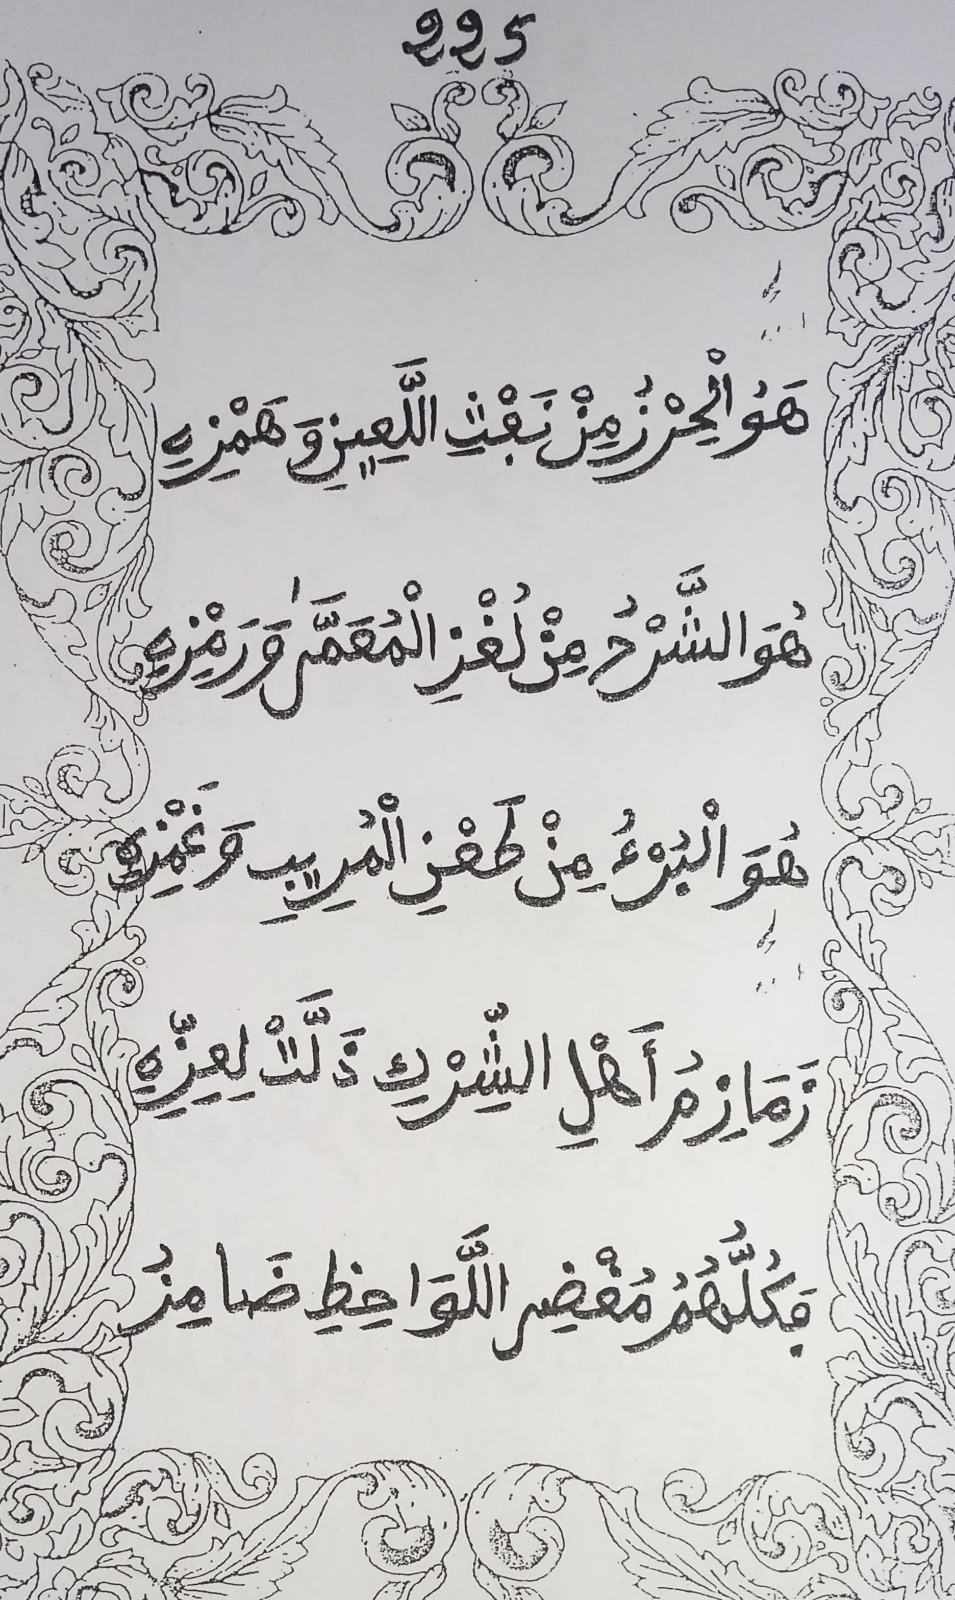 225
هَوُ الْحِرْزُ مِنْ نَفْثِ اللَّعِينِ وَهَمْزِهِ
هُوَ الشَّرْحُ مِنْ لُغْزِ الْمُعَمَّىٰ وَرَمْزِهِ
هُوَ الْبُرْءُ مِنْ طَعْنِ الْمُرِيبِ وَغَمْزِهِ
زَمَازِمُ أَهْلِ الشِّرْكِ ذَلَّتْ لِعِزِّهِ
فَكُلُّهُمُ مُغْضِي اللَّوَاحِظِ ضَامِزُ